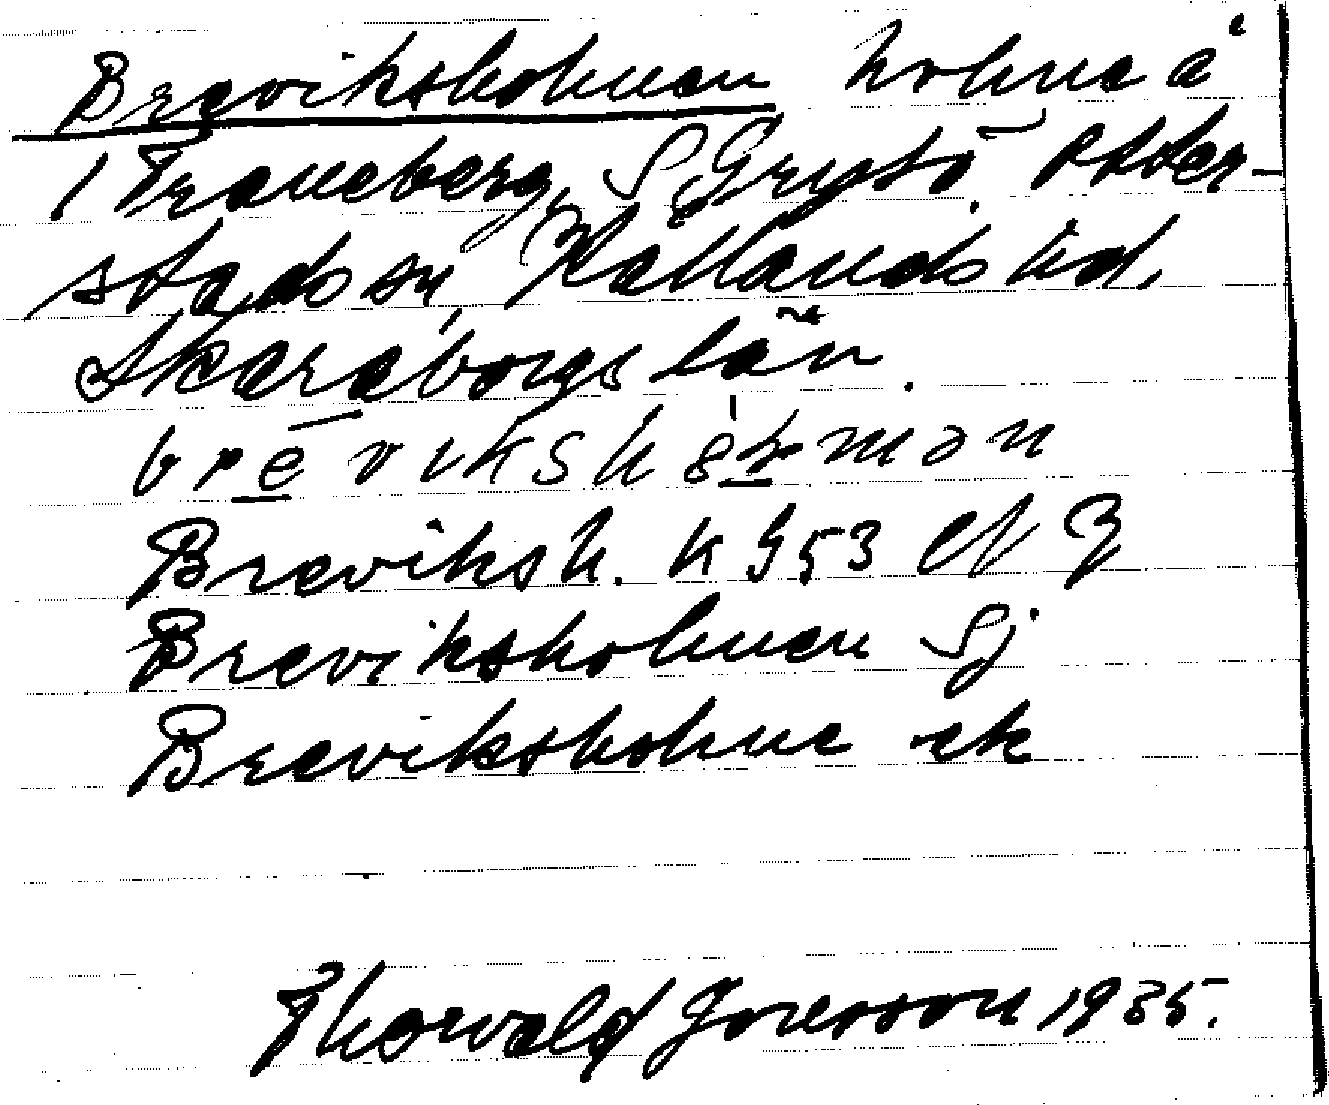 Breviksholmen holme å
1 Traneberg, S Grytö. Otter-
stads sn, Kållands hd,
Skaraborgs län.
brévikshɵ̀ḷmən
Breviksh. K G53 Ef Z
Breviksholmen Sj
Breviksholme ek
Thorvald Joresson 1935.